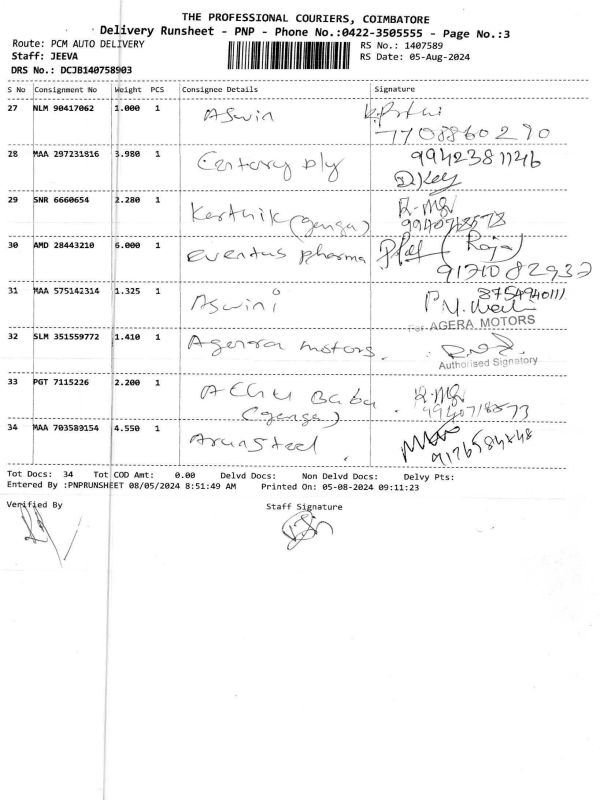 THE PROFESSIONAL COURIERS, COIMBATORE
Delivery Runsheet - PNP - Phone No.:0422-3505555 - Page No.:3
Route: PCM AUTO DELIVERY
RS No.: 1407589
Staff: JEEVA
RS Date: 05-Aug-2024
DRS No.: DCJB140758903
S No Consignment No Weight PCS Consignee Details Signature
27 NLM 90417062 1.000 1 Aswin
7708860290
28 MAA 297231816 3.980 1 Century ply 9942381146
29 SNR 6660654 2.280 1 Karthik (ganga)
9940718573
30 AMD 28443210 6.000 1 Eventus pharma (Raja)
9171082937
31 MAA 575142314 1.325 1 Aswini 8754940111
For AGERA MOTORS
32 SLM 351559772 1.410 1 Agerra motors.
Authorised Signatory
33 PGT 7115226 2.200 1 Athu Baba
(ganga) 9940718573
34 MAA 703580154 4.550 1 Arun Steel
9176584848
Tot Docs: 34 Tot COD Amt: 0.00 Delvd Docs: Non Delvd Docs: Delvy Pts:
Entered By :PNPRUNSHEET 08/05/2024 8:51:49 AM Printed On: 05-08-2024 09:11:23
Verified By Staff Signature